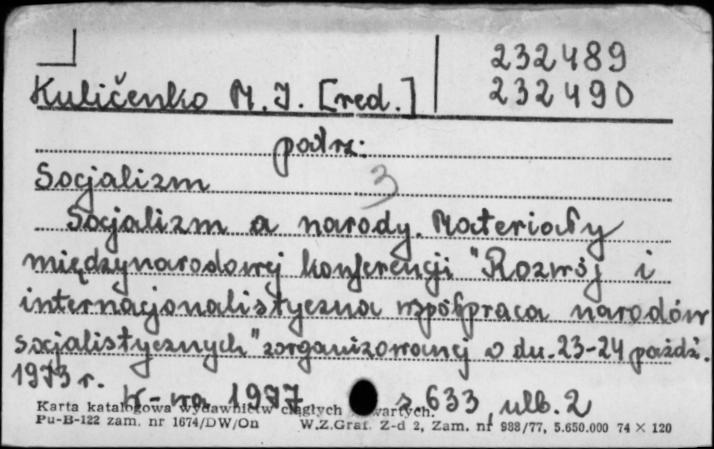 232489
Kuličenko M. I. [red.] 232490
patrz:
Socjalizm 3
Socjalizm a narody. Materiały
międzynarodowej konferencji "Rozwój i
internacjonalistyczna współpraca narodów
socjalistycznych" zorganizowanej w dn. 23-24 paźdź.
1973 r.
W-wa 1977 s. 633, nlb. 2
Karta katalogowa wydawnictw ciągłych zwartych.
Pu-B-122 zam. nr 1674/DW/On W.Z.Graf. Z-d 2, Zam. nr 988/77, 5.650.000 74 × 120